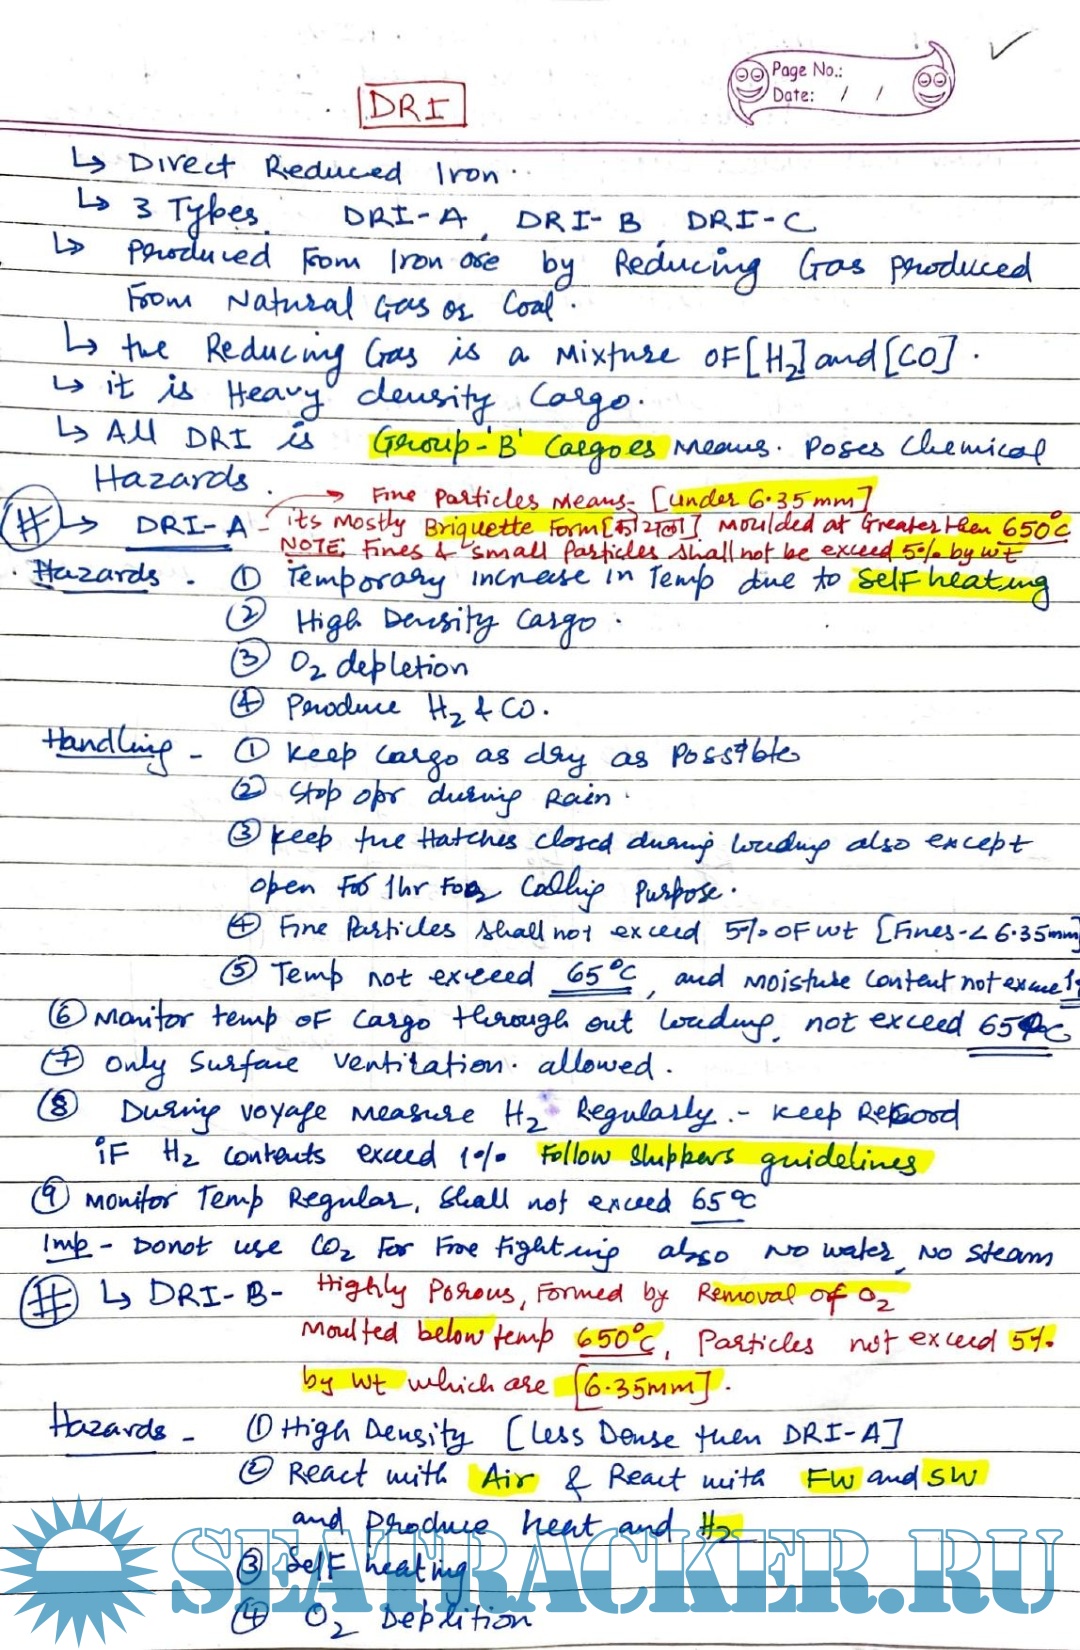 Page No.:
Date: / /
DRI
↳ Direct Reduced Iron.
↳ 3 Types. DRI-A, DRI-B, DRI-C
↳ Produced From Iron ore by Reducing Gas produced
From Natural Gas or Coal.
↳ the Reducing Gas is a Mixture OF [H₂] and [CO].
↳ it is Heavy density Cargo.
↳ All DRI is Group-'B' Cargoes Means. Poses Chemical
Hazards.
→ Fine Particles Means- [under 6.35mm]
# ↳ DRI-A - its Mostly Briquette Form [] Moulded at Greater then 650°C
NOTE: Fines & small Particles shall not be exceed 5% by wt
Hazards. ① Temporary increase in Temp due to Self heating
② High Density Cargo.
③ O₂ depletion
④ Produce H₂ & CO.
Handling - ① Keep Cargo as dry as Possible
② Stop opr during Rain.
③ Keep the Hatches closed during loading also except
open For 1hr For Purpose.
④ Fine Particles shall not exceed 5% OF wt [Fines-< 6.35mm]
⑤ Temp not exceed 65°C, and Moisture Content not 1%
⑥ Monitor temp OF Cargo through out loading, not exceed 65°C
⑦ Only Surface Ventilation. allowed.
⑧ During voyage Measure H₂ Regularly.- Keep Record
iF H₂ Contents exceed 1% Follow Shippers guidelines
⑨ Monitor Temp Regular, Shall not exceed 65°C
Imp - Donot use CO₂ For Fire Fighting also No water, No steam
# ↳ DRI-B- Highly Porous, Formed by Removal of O₂
Moulted below temp 650°C, Particles not exceed 5%
by wt which are [6.35mm].
Hazards - ① High Density [Less Dense then DRI-A]
② React with Air & React with FW and SW
and Produce heat and H₂
③ Self heating
④ O₂ Deplition
SEATRACKER.RU